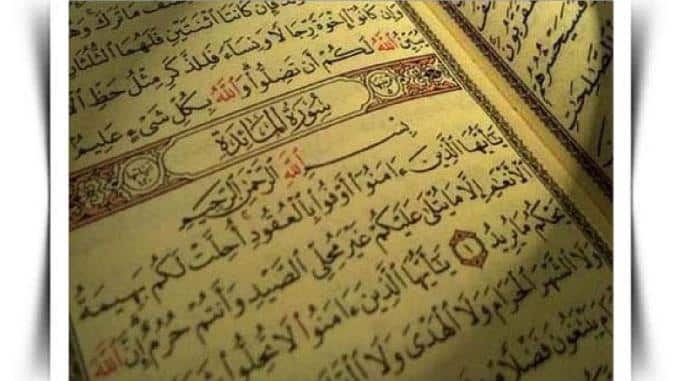 صْفُ مَا تَرَكَ وَهُوَ
فَإِن كَانَتَا ٱثْنَتَيْنِ فَلَهُمَا ٱلثُّلُثَانِ
وَإِن كَانُوٓا۟ إِخْوَةً رِّجَالًا وَنِسَآءً فَلِلذَّكَرِ مِثْلُ حَظِّ
ٱللَّهُ لَكُمْ أَن تَضِلُّوا۟ وَٱللَّهُ بِكُلِّ شَىْءٍ عَلِيمٌ
سُورَةُ المَائِدَةِ
بِسْمِ ٱللَّهِ ٱلرَّحْمَٰنِ ٱلرَّحِيمِ
يَٰٓأَيُّهَا ٱلَّذِينَ ءَامَنُوٓا۟ أَوْفُوا۟ بِٱلْعُقُودِ أُحِلَّتْ لَكُم بَهِيمَةُ
ٱلْأَنْعَٰمِ إِلَّا مَا يُتْلَىٰ عَلَيْكُمْ غَيْرَ مُحِلِّى ٱلصَّيْدِ وَأَنتُمْ حُرُمٌ إِنَّ ٱللَّهَ
يَحْكُمُ مَا يُرِيدُ ١ يَٰٓأَيُّهَا ٱلَّذِينَ ءَامَنُوا۟ لَا تُحِلُّوا۟
وَلَا ٱلشَّهْرَ ٱلْحَرَامَ وَلَا ٱلْهَدْىَ وَلَا
يَبْتَغُونَ فَضْلًا